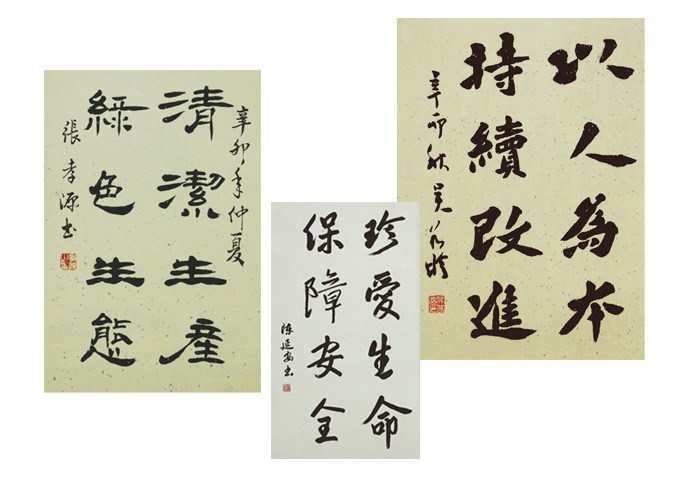 辛卯年仲夏
清潔生産
綠色生態
張孝源书
珍愛生命
保障安全
陈延安书
以人為本
持續改進
辛卯秋吴